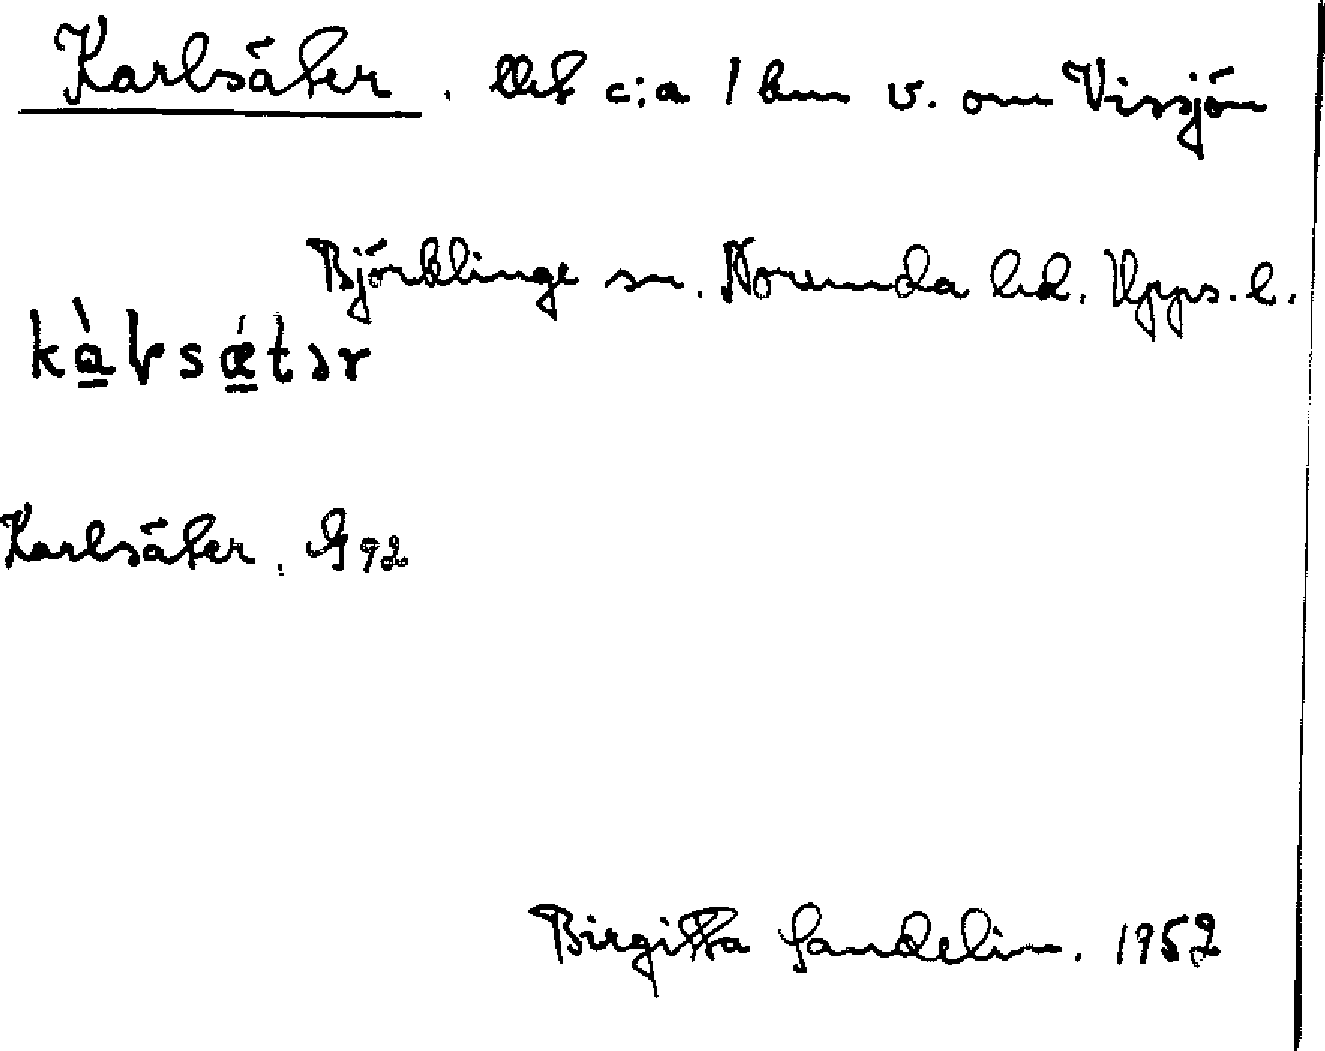 Karlsäter. Det c:a 1 km v. om Vissjön
Björklinge sn. Norunda hd. Upps. l.
kàḷsǽtər
Karlsäter. G 92
Birgitta Sandelin. 1952